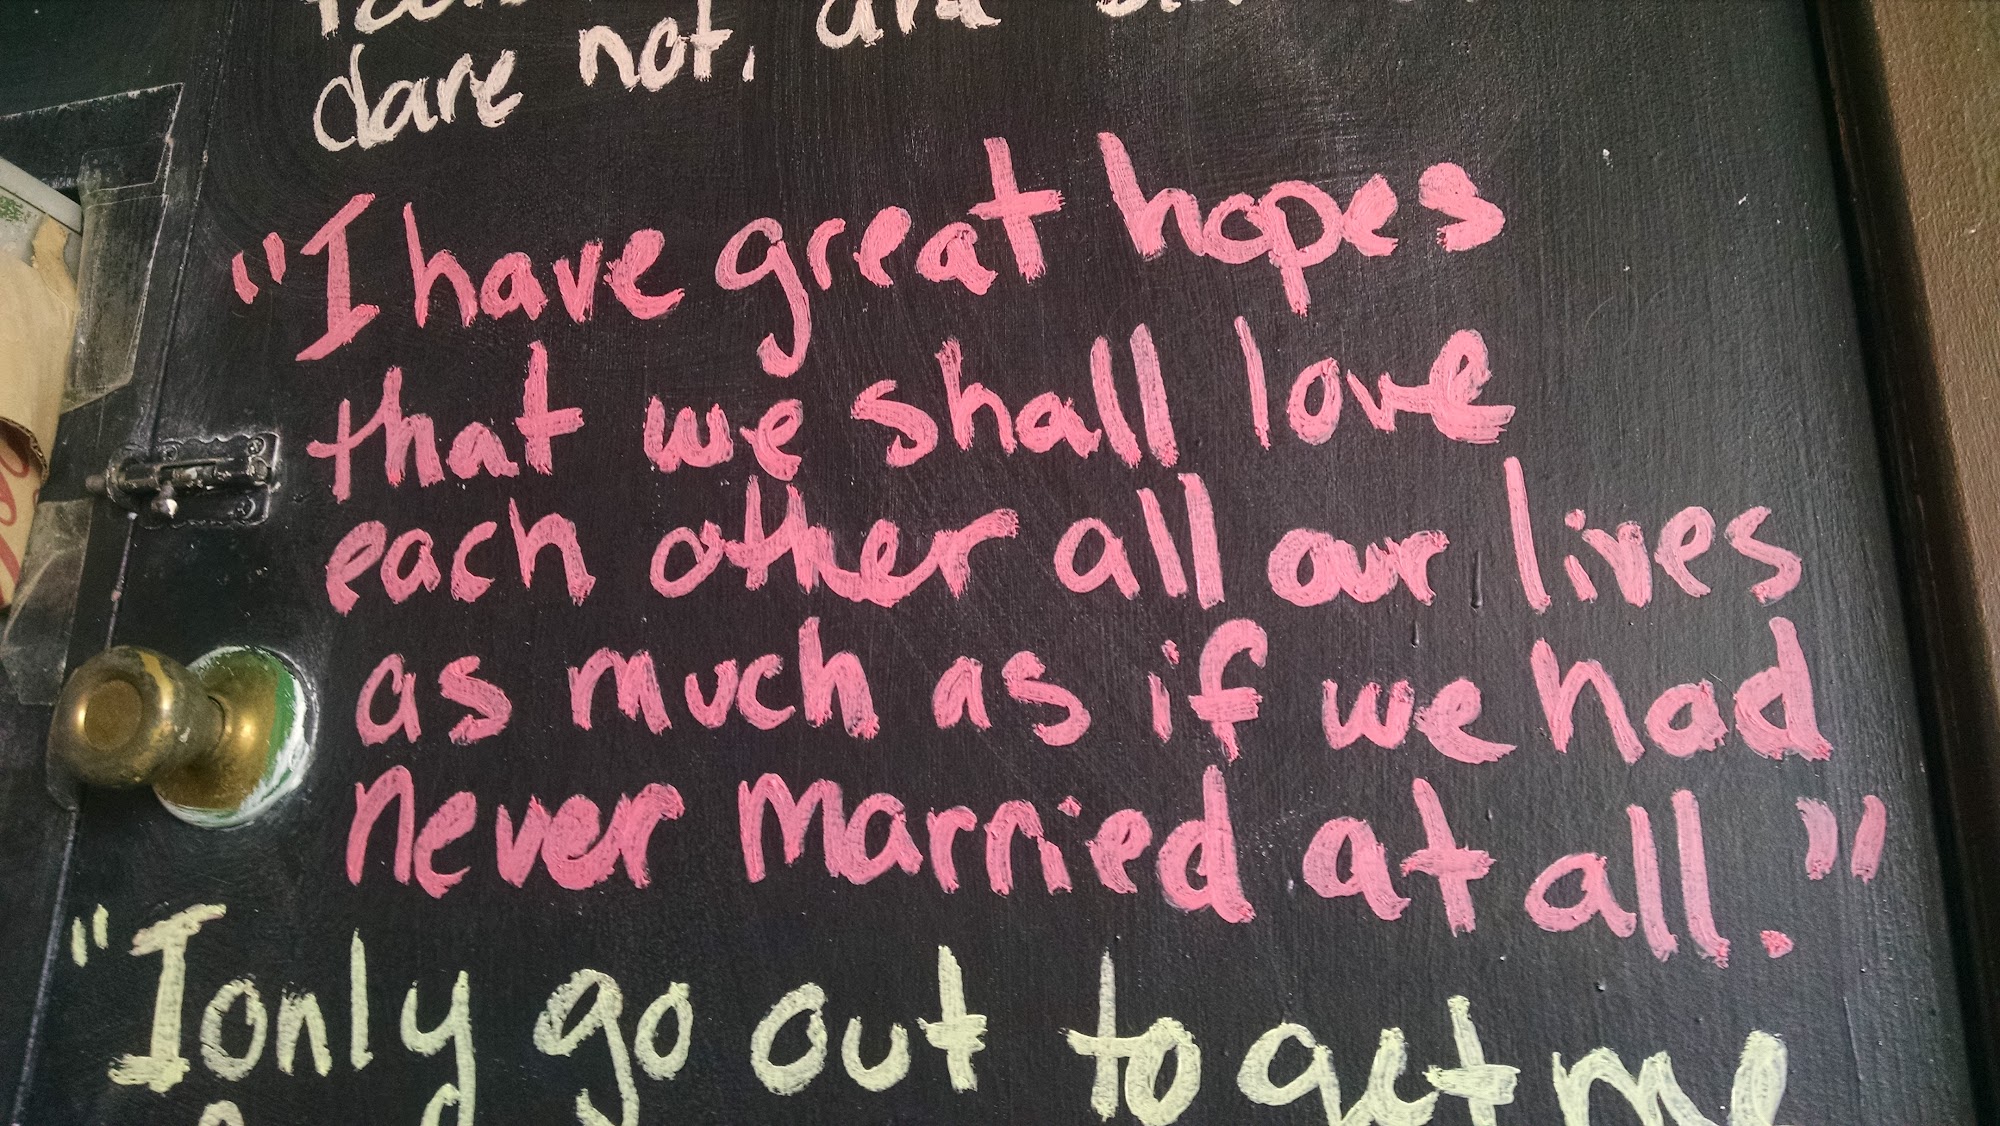 dare not, and
"I have great hopes
that we shall love
each other all our lives
as much as if we had
never married at all."
"I only go out to get me